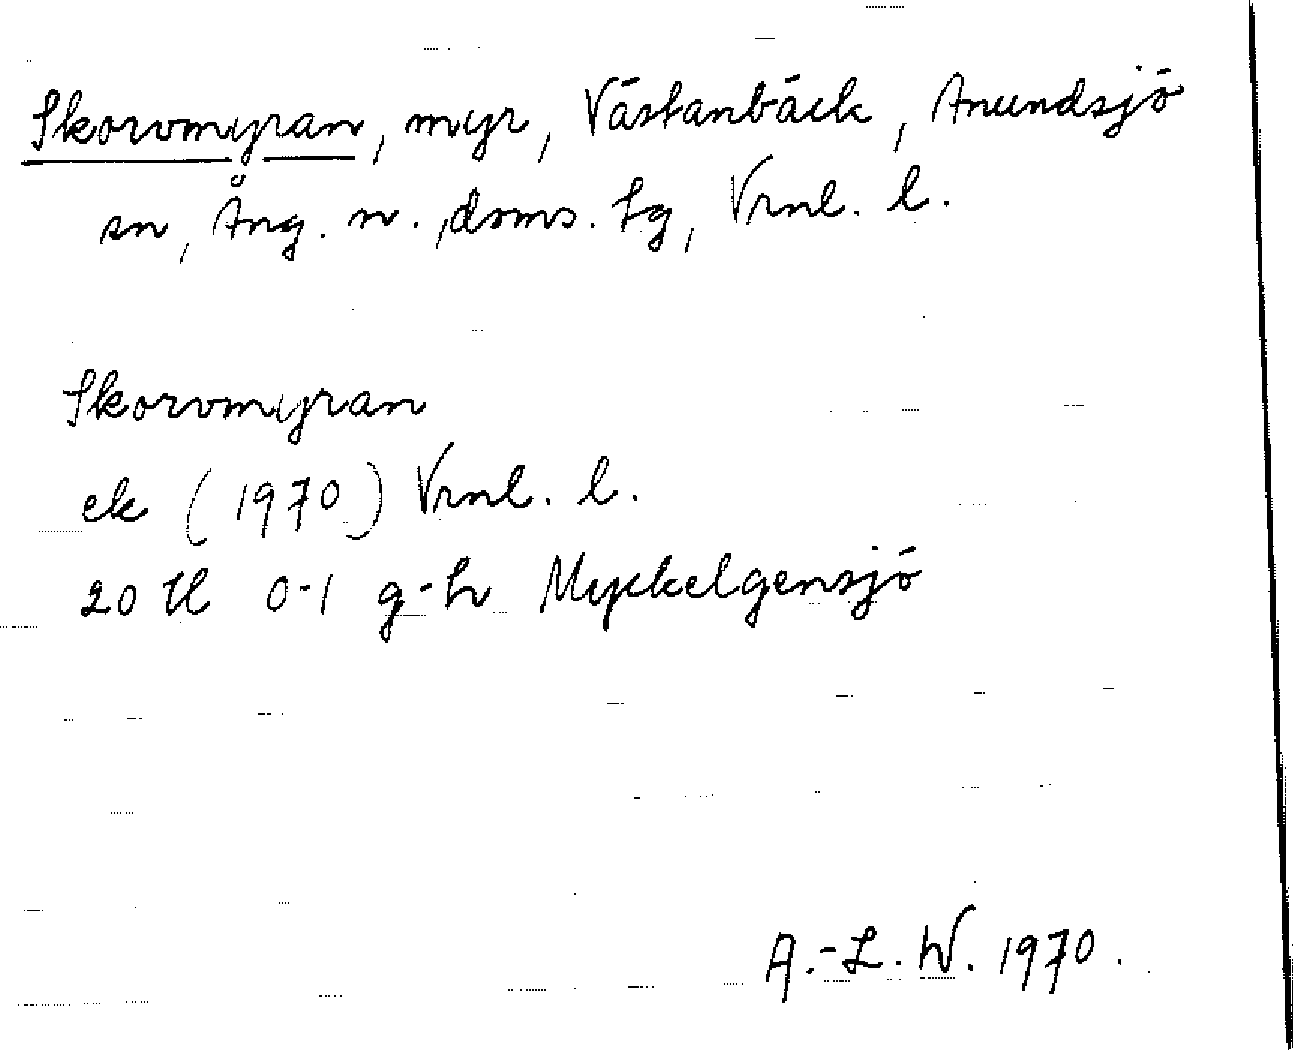 Skorvmyran, myr, Västanbäck, Anundsjö
sn, Ång. n., doms. tg, Vrnl. l.
Skorvmyran
ek (1970) Vrnl. l.
20 H 0-1 g-h Myckelgensjö
A.-L. W. 1970.